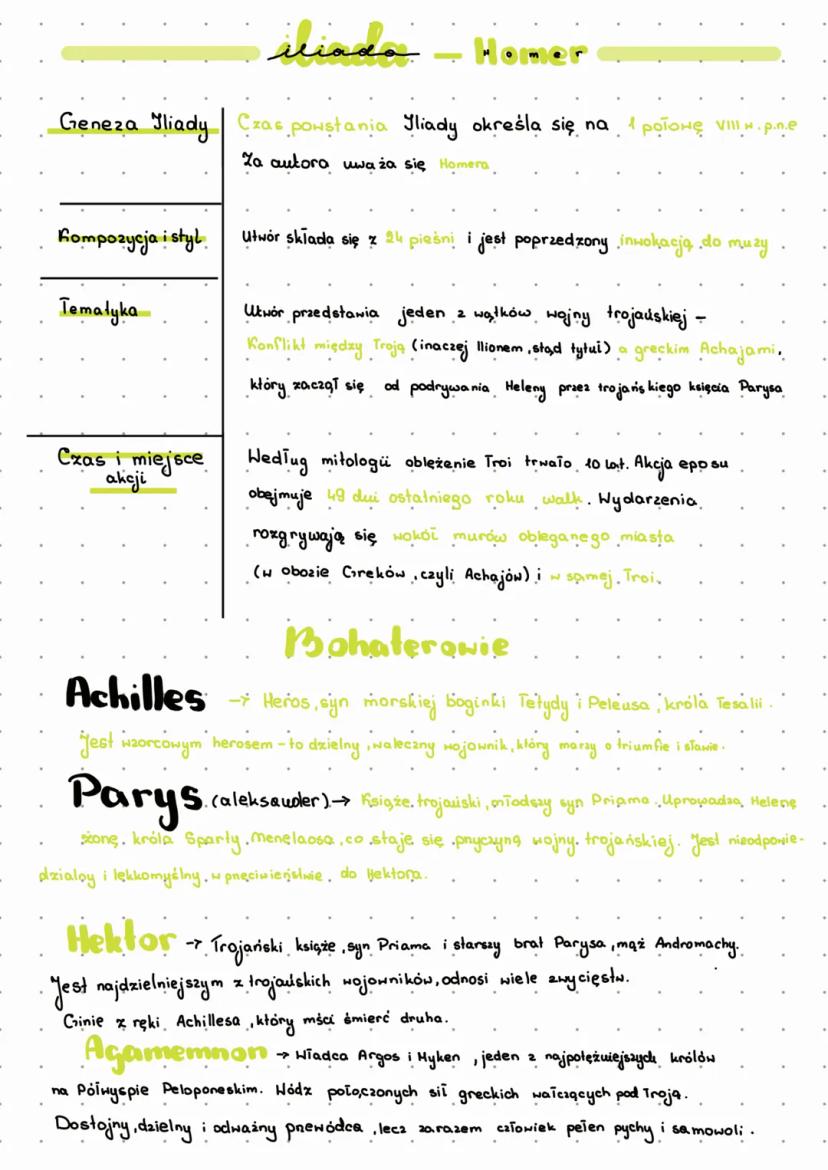 iliada – Homer
Geneza Iliady
Czas powstania Iliady określa się na 1 połowę VIII w. p.n.e
Za autora uważa się Homera
Kompozycja i styl
Utwór składa się z 24 pieśni i jest poprzedzony inwokacją do muzy
Tematyka
Utwór przedstawia jeden z wątków wojny trojańskiej –
Konflikt między Troją (inaczej Ilionem, stąd tytuł) a greckim Achajami,
który zaczął się od podrywania Heleny przez trojańskiego księcia Parysa
Czas i miejsce
akcji
Według mitologii oblężenie Troi trwało 10 lat. Akcja eposu
obejmuje 49 dni ostatniego roku walk. Wydarzenia
rozgrywają się wokół murów obleganego miasta
(w obozie Greków, czyli Achajów) i w samej Troi.
Bohaterowie
Achilles → Heros, syn morskiej boginki Tetydy i Peleusa, króla Tesalii.
Jest wzorcowym herosem – to dzielny, waleczny wojownik, który marzy o triumfie i sławie.
Parys (aleksander) → Książe trojański, młodszy syn Priama. Uprowadza Helenę
żonę króla Sparty Menelaosa, co staje się przyczyną wojny trojańskiej. Jest nieodpowie-
dzialny i lekkomyślny w przeciwieństwie do Hektora.
Hektor → Trojański książe, syn Priama i starszy brat Parysa, mąż Andromachy.
Jest najdzielniejszym z trojańskich wojowników, odnosi wiele zwycięstw.
Ginie z ręki Achillesa, który mści śmierć druha.
Agamemnon → Władca Argos i Myken, jeden z najpotężniejszych królów
na Półwyspie Peloponeskim. Wódz połączonych sił greckich walczących pod Troją.
Dostojny, dzielny i odważny przewódca, lecz zarazem człowiek pełen pychy i samowoli.